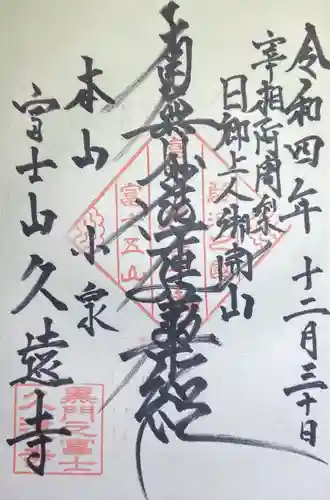 令和四年 十二月三十日
宰相阿闍梨
日郷上人御開山
南無妙法蓮華経
本山 小泉
富士山久遠寺
富士五山
黒門之富士
久遠寺